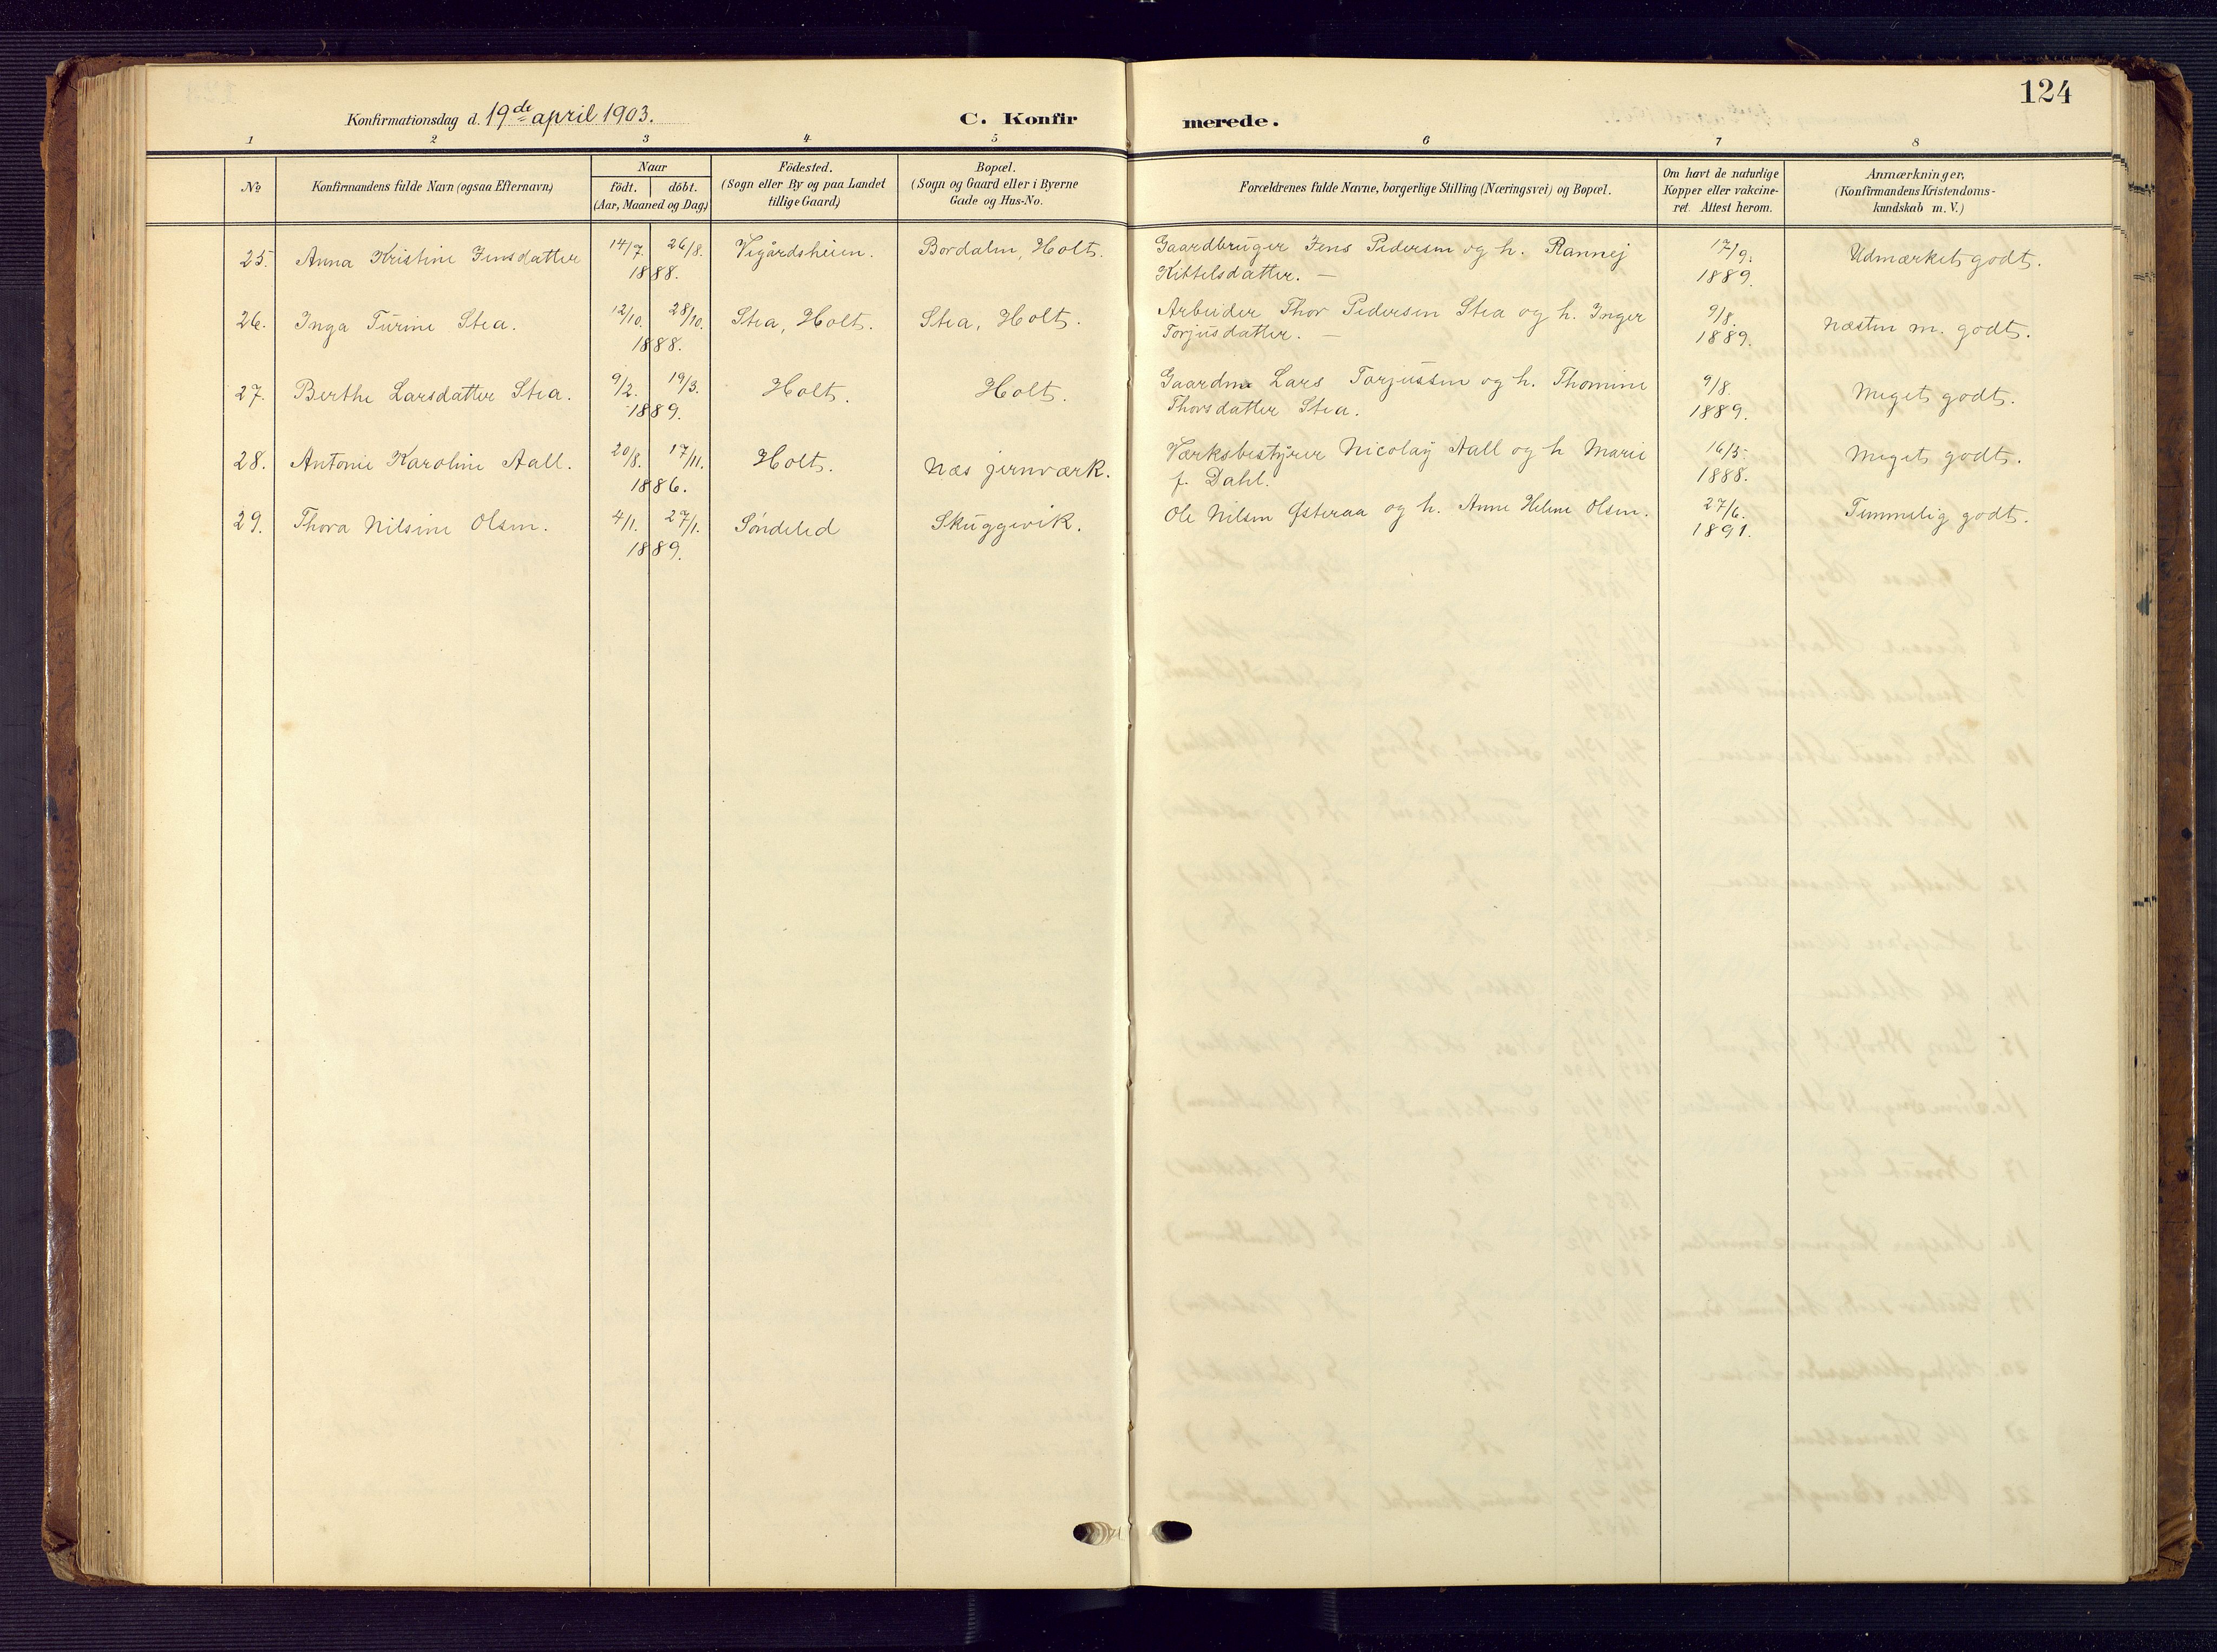 124
Konfirmationsdag d. 19de april 1903.
C. Konfirmerede.
1 2 3 4 5 6 7 8
No
Konfirmandens fulde Navn (ogsaa Efternavn)
Naar
födt. döbt.
(Aar, Maaned og Dag)
Födested.
(Sogn eller By og paa Landet
tillige Gaard)
Bopæl.
(Sogn og Gaard eller i Byerne
Gade og Hus-No.
Forældrenes fulde Navne, borgerlige Stilling (Næringsvei) og Bopæl.
Om havt de naturlige
Kopper eller vakcine-
ret. Attest herom.
Anmærkninger,
(Konfirmandens Kristendoms-
kundskab m. V.)
25. Anna Kristine Jensdatter 14/7. 26/8. 1888. Vegårdsheien. Bordalen, Holt. Gaardbruger Jens Pedersen og h. Rannej
Kittelsdatter. — 17/9. 1889. Udmærket godt.
26. Inga Turine Stea. 12/10. 28/10. 1888. Stea, Holt. Stea, Holt. Arbeider Thor Pedersen Stea og h. Inger
Torjusdatter. — 9/8. 1889. Næsten m. godt.
27. Berthe Larsdatter Stea. 9/2. 19/3. 1889. Holt. Holt. Gaardm. Lars Torjussen og h. Thomine
Thorsdatter Stea. 9/8. 1889. Meget godt.
28. Antonie Karoline Aall. 20/8. 17/11. 1886. Holt. Næs jernværk. Værksbestyrer Nicolay Aall og h Marie
f. Dahl. 16/5. 1888. Meget godt.
29. Thora Nilsine Olsen. 4/1. 27/1. 1889. Söndeled Skuggevik. Ole Nilsen Østeraa og h. Anne Helene Olsen. 27/6. 1891. Temmelig godt.